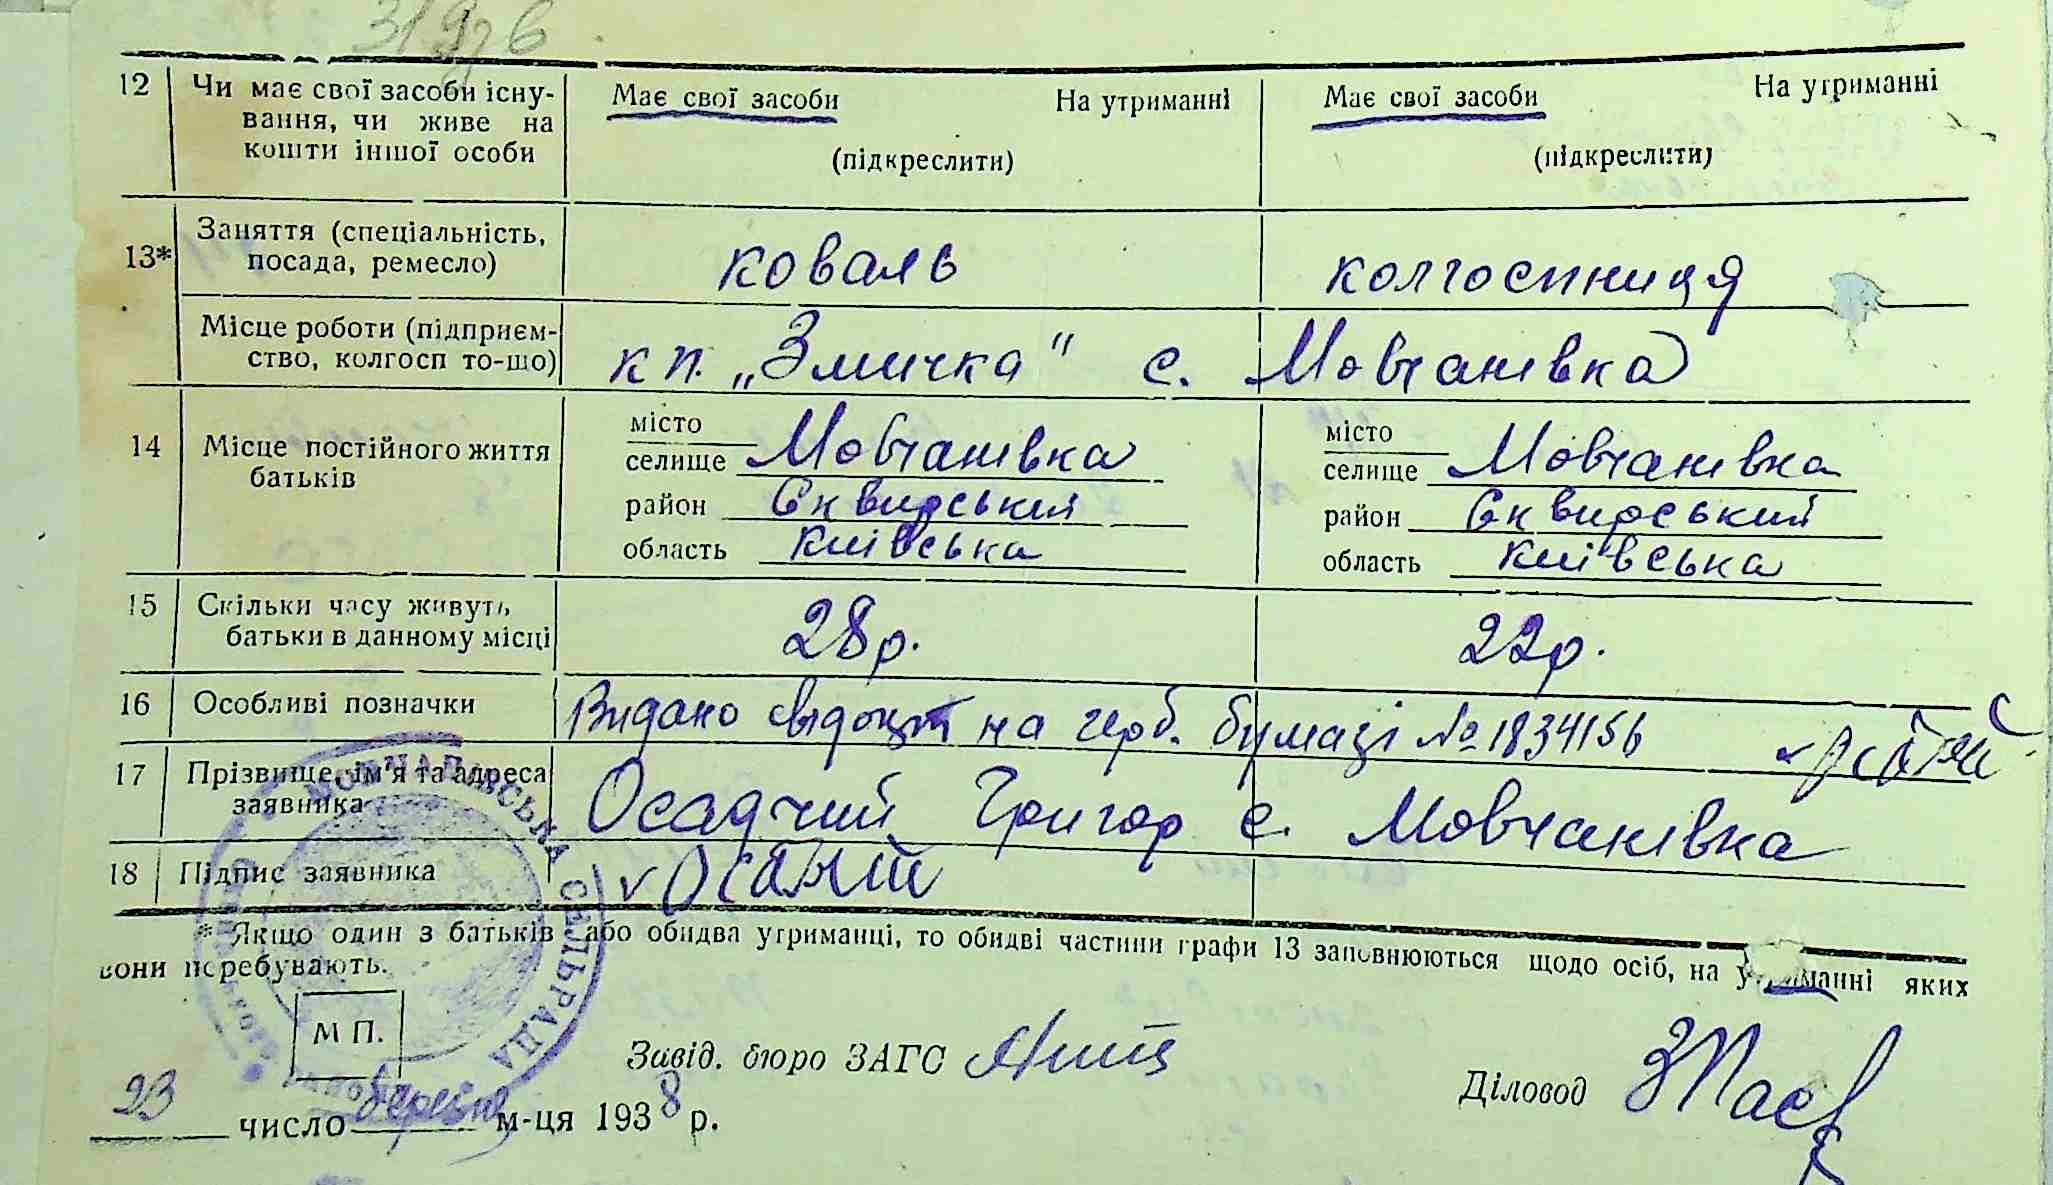 12 Чи має свої засоби існу- Має свої засоби На утриманні Має свої засоби На утриманні
вання, чи живе на
кошти іншої особи (підкреслити) (підкреслити)
13* Заняття (спеціальність,
посада, ремесло) коваль колгоспниця
Місце роботи (підприєм-
ство, колгосп то-що) кп. „Змичка" с. Мовчанівка
14 Місце постійного життя
батьків
місто
селище Мовчанівка
район Сквирський
область Київська
місто
селище Мовчанівка
район Сквирський
область Київська
15 Скільки часу живуть
батьки в данному місці 28 р. 22 р.
16 Особливі позначки Видано свідоцт на герб. бумазі № 1834156
17 Прізвище, ім'я та адреса
заявника Осадчий Григор с. Мовчанівка
18 Підпис заявника
* Якщо один з батьків або обидва утриманці, то обидві частини графи 13 заповнюються щодо осіб, на утриманні яких
вони перебувають.
МОВЧАНІВСЬКА СІЛЬРАДА
М П.
Завід. бюро ЗАГС
Діловод
23 число березня м-ця 1938 р.